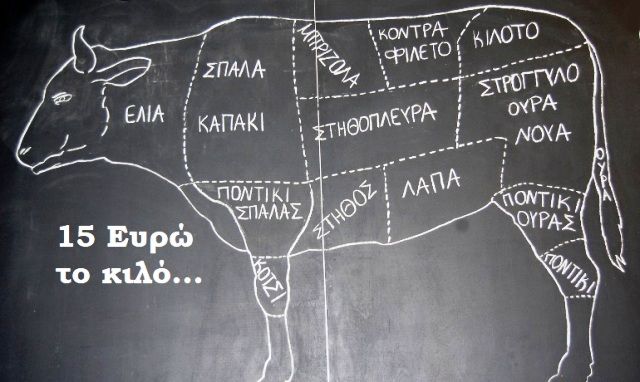 ΜΠΡΙΖΟΛΑ
ΚΟΝΤΡΑ
ΦΙΛΕΤΟ
ΚΙΛΟΤΟ
ΣΠΑΛΑ
ΚΑΠΑΚΙ
ΕΛΙΑ
ΣΤΗΘΟΠΛΕΥΡΑ
ΣΤΡΟΓΓΥΛΟ
ΟΥΡΑ
ΝΟΥΑ
ΟΥΡΑ
ΠΟΝΤΙΚΙ
ΣΠΑΛΑΣ
ΣΤΗΘΟΣ
ΛΑΠΑ
ΠΟΝΤΙΚΙ
ΟΥΡΑΣ
ΠΟΝΤΙΚΙ
ΚΟΤΣΙ
15 Ευρώ
το κιλό...